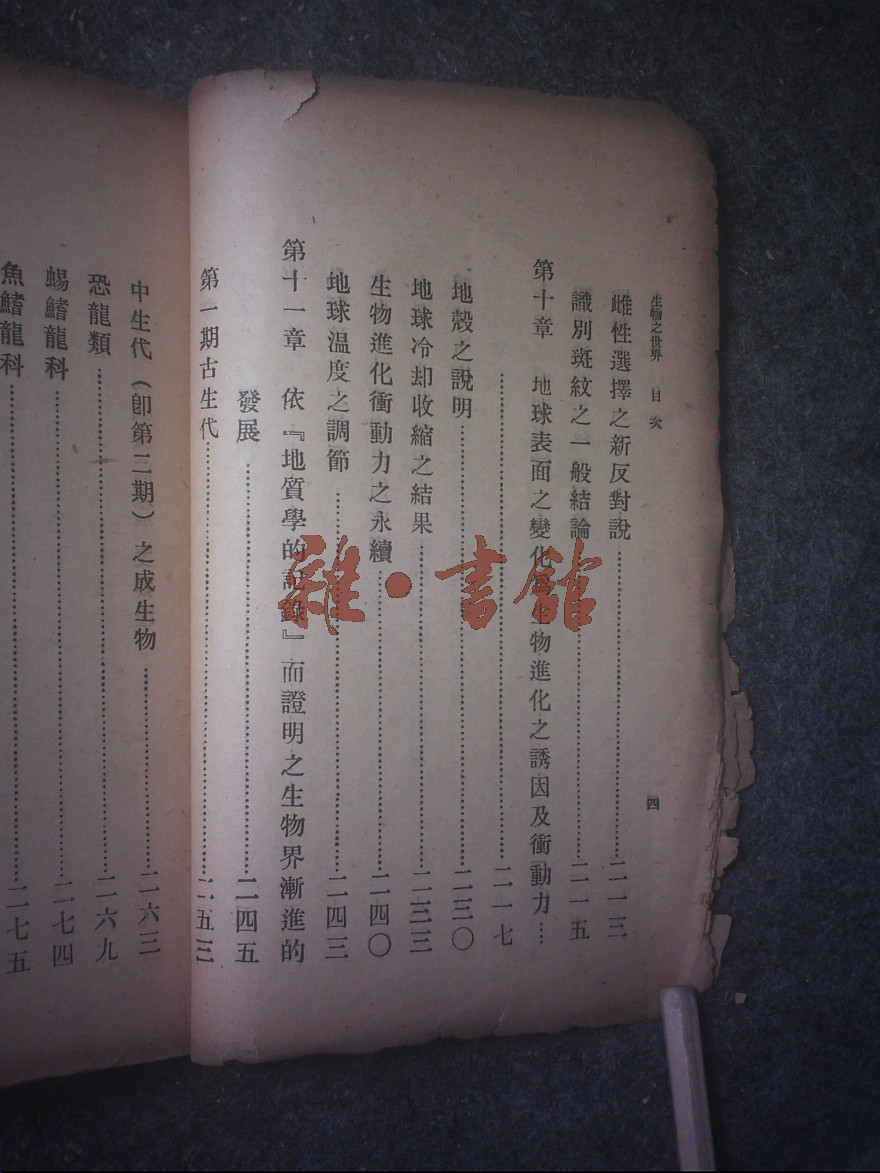 生物之世界 目次
四
雌性選擇之新反對說……二一三
識別斑紋之一般結論……二一五
第十章 地球表面之變化爲生物進化之誘因及衝動力……
……二一七
地殼之說明……二三〇
地球冷却收縮之結果……二三三
生物進化衝動力之永續……二四〇
地球溫度之調節……二四三
第十一章 依『地質學的記錄』而證明之生物界漸進的
發展……二四五
第一期古生代……二五三
中生代（卽第二期）之成生物……二六三
恐龍類……二六九
蜴鰭龍科……二七四
魚鰭龍科……二七五
雜·書館